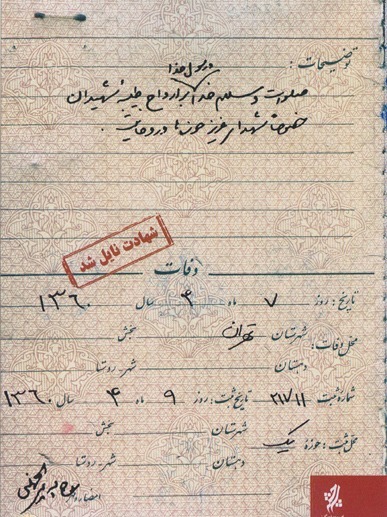 توضیحات:
و رسول خدا
صلوات و سلام خدا بر ارواح طیبهٔ شهیدان
خصوصاً شهدای عزیز حوزه‌ها و روحانیت.
شهادت نایل شد
وفات
تاریخ: روز ۷ ماه ۴ سال ۱۳۶۰
محل وفات: شهرستان تهران بخش
دهستان شهر-روستا
شماره ثبت ۲۱۷۱۱ تاریخ ثبت: روز ۹ ماه ۴ سال ۱۳۶۰
محل ثبت: حوزه یک شهرستان بخش
دهستان شهر-روستا
امضاء